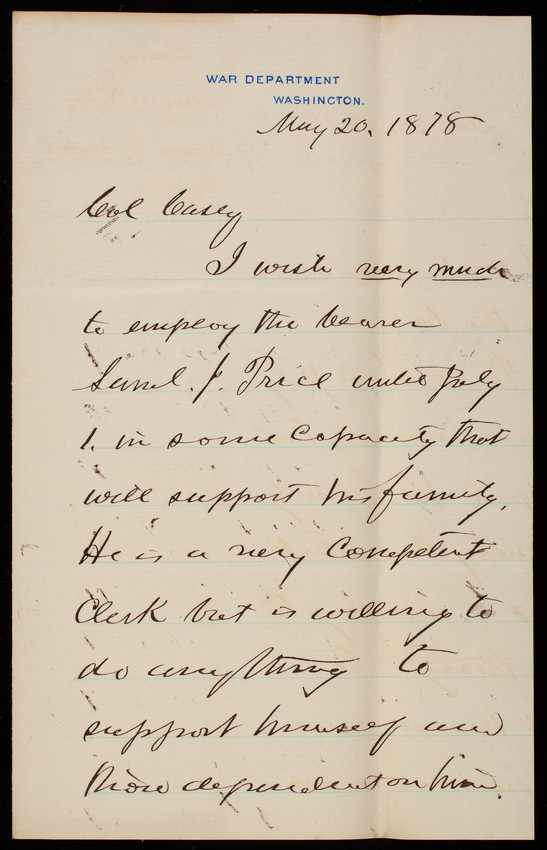 WAR DEPARTMENT
WASHINGTON.
May 20, 1878
Col Casey
I wish very much
to employ the bearer
Saml. J. Price until July
1. in some capacity that
will support his family.
He is a very competent
Clerk but is willing to
do anything to
support himself and
those dependent on him.